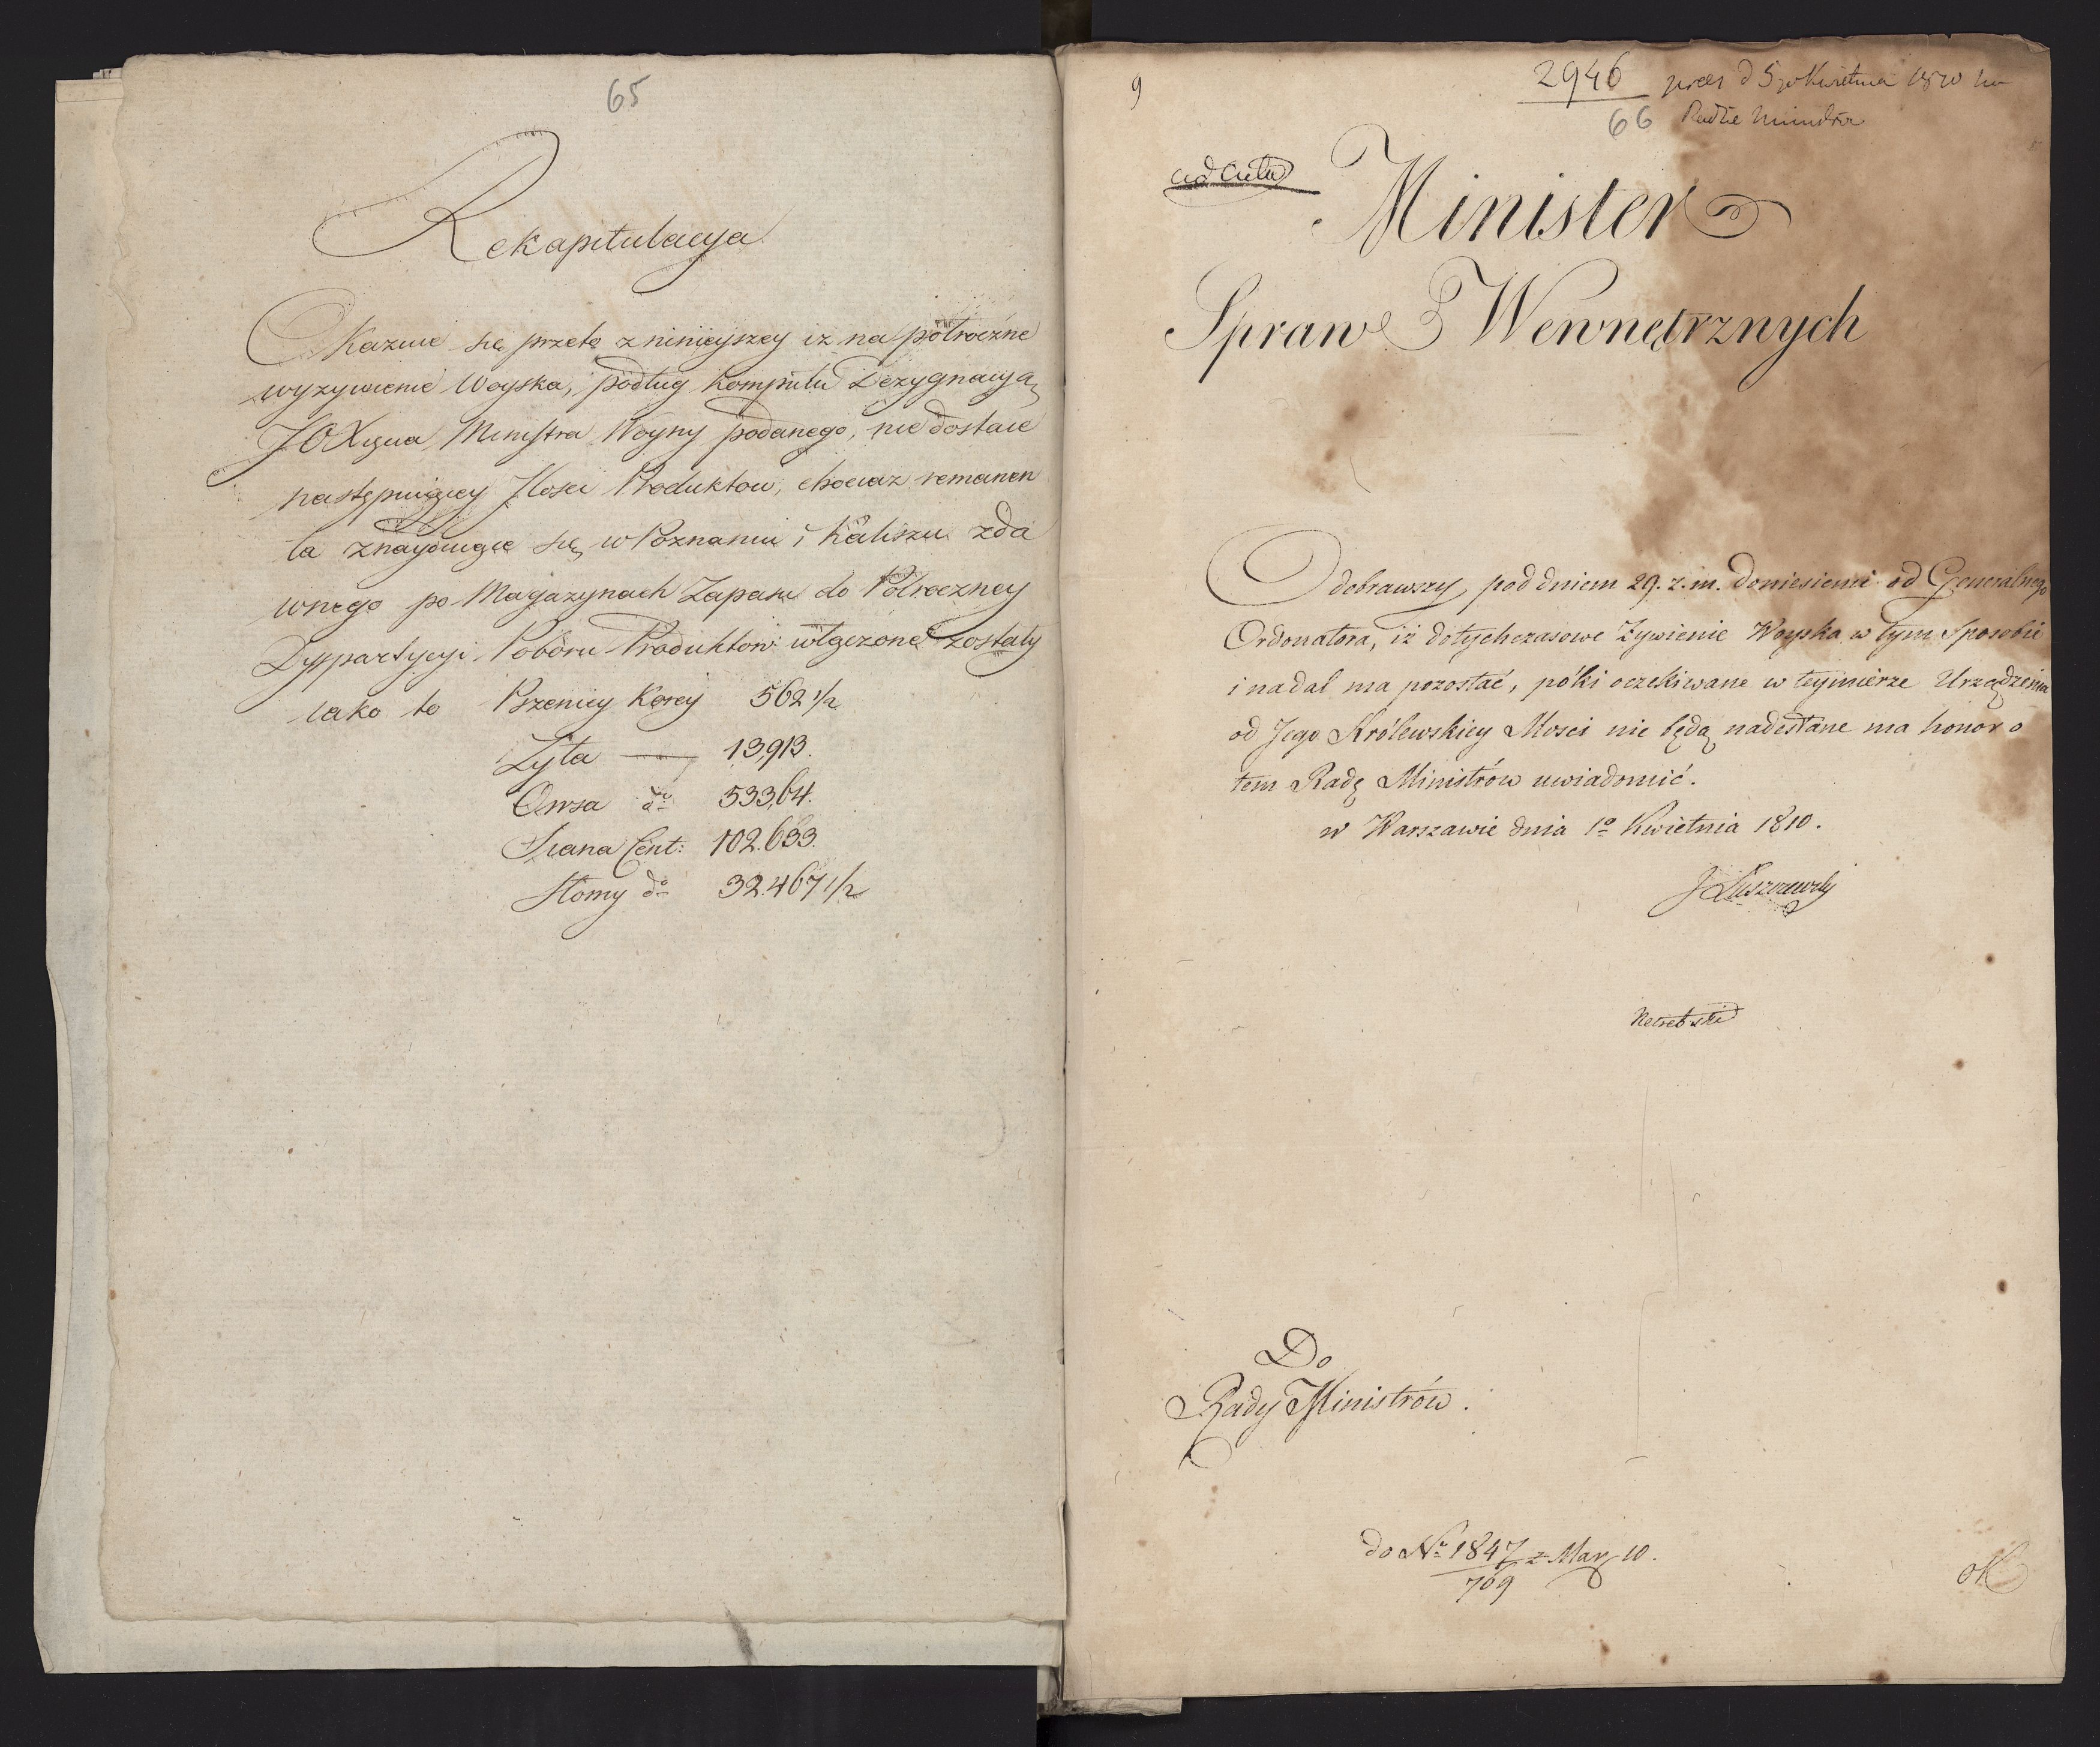 65
Rekapitulacya
Okazuie się przeto z ninieyszey iz na połroczne
wyzywienie Woyska, podług Komputu Dezygnacyą
JOXięcia Ministra Woyny podanego, nie dostaie
następuiącey Jlosci Produktow, chociaz remanen
ta znayduiące się w Poznaniu i Kaliszu zda
wnego po Magazynach Zapasu do Połroczney
Dyspartycyi Poboru Produktow włączone zostały
iako to Pszenicy Korcy 562 1/2
Zyta — 13,913.
Owsa do 533,64.
Siana Cent: 102.633.
Słomy do 32.467 1/2
9
2946 pres d 5go Kwietnia 1810 w
66 Radzie Ministrów
ad acta
Minister
Spraw Wewnętrznych
Odebrawszy pod dniem 29. z. m. doniesienie od Generalnego
Ordonatora, iż dotychczasowe Zywienie Woyska w tym Sposobie
i nadal ma pozostać, póki oczekiwane w teymierze Urządzenia
od Jego Królewskiey Mosci nie będą nadesłane ma honor o
tem Radę Ministrów uwiadomić.
w Warszawie dnia 1o Kwietnia 1810.
J Łuszczewski
Do
Rady Ministrów.
do No 1847 z Mar 10.
709